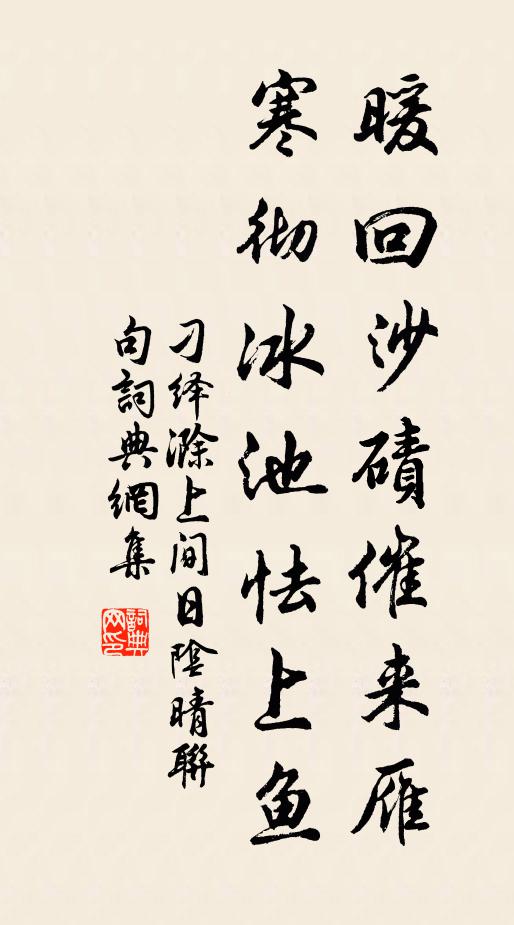 暖回沙磧催来雁
寒彻冰池怯上鱼
刁绎滁上间日陰晴聯
句詞典網集
詞典网印